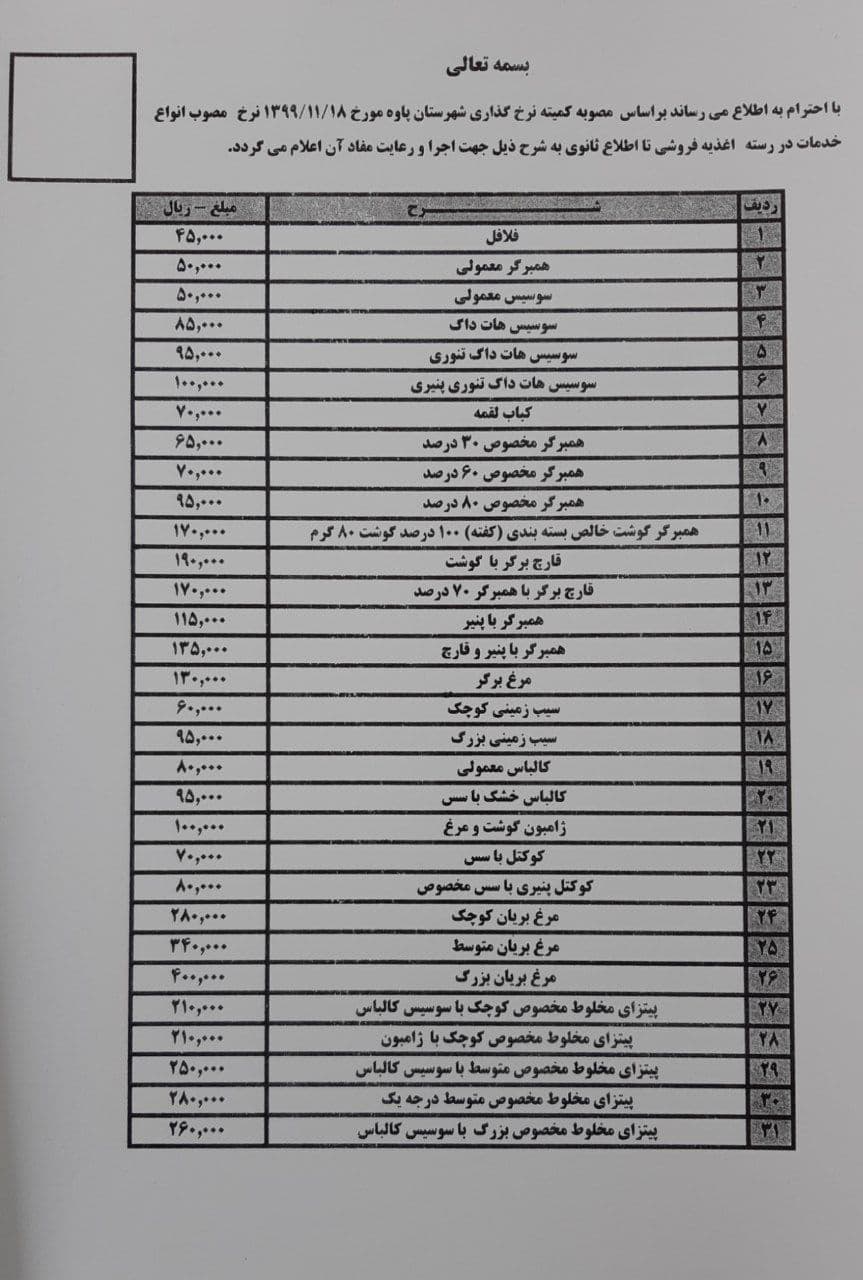 بسمه تعالی
با احترام به اطلاع می رساند براساس مصوبه کمیته نرخ گذاری شهرستان پاوه مورخ ۱۳۹۹/۱۱/۱۸ نرخ مصوب انواع
خدمات در رسته اغذیه فروشی تا اطلاع ثانوی به شرح ذیل جهت اجرا و رعایت مفاد آن اعلام می گردد.
ردیف شرح مبلغ – ریال
۱ فلافل ۴۵,۰۰۰
۲ همبرگر معمولی ۵۰,۰۰۰
۳ سوسیس معمولی ۵۰,۰۰۰
۴ سوسیس هات داگ ۸۵,۰۰۰
۵ سوسیس هات داگ تنوری ۹۵,۰۰۰
۶ سوسیس هات داگ تنوری پنیری ۱۰۰,۰۰۰
۷ کباب لقمه ۷۰,۰۰۰
۸ همبرگر مخصوص ۳۰ درصد ۶۵,۰۰۰
۹ همبرگر مخصوص ۶۰ درصد ۷۰,۰۰۰
۱۰ همبرگر مخصوص ۸۰ درصد ۹۵,۰۰۰
۱۱ همبرگر گوشت خالص بسته بندی (کفته) ۱۰۰ درصد گوشت ۸۰ گرم ۱۷۰,۰۰۰
۱۲ قارچ برگر با گوشت ۱۹۰,۰۰۰
۱۳ قارچ برگر با همبرگر ۷۰ درصد ۱۷۰,۰۰۰
۱۴ همبرگر با پنیر ۱۱۵,۰۰۰
۱۵ همبرگر با پنیر و قارچ ۱۳۵,۰۰۰
۱۶ مرغ برگر ۱۳۰,۰۰۰
۱۷ سیب زمینی کوچک ۶۰,۰۰۰
۱۸ سیب زمینی بزرگ ۹۵,۰۰۰
۱۹ کالباس معمولی ۸۰,۰۰۰
۲۰ کالباس خشک با سس ۹۵,۰۰۰
۲۱ ژامبون گوشت و مرغ ۱۰۰,۰۰۰
۲۲ کوکتل با سس ۷۰,۰۰۰
۲۳ کوکتل پنیری با سس مخصوص ۸۰,۰۰۰
۲۴ مرغ بریان کوچک ۲۸۰,۰۰۰
۲۵ مرغ بریان متوسط ۳۴۰,۰۰۰
۲۶ مرغ بریان بزرگ ۴۰۰,۰۰۰
۲۷ پیتزای مخلوط مخصوص کوچک با سوسیس کالباس ۲۱۰,۰۰۰
۲۸ پیتزای مخلوط مخصوص کوچک با ژامبون ۲۱۰,۰۰۰
۲۹ پیتزای مخلوط مخصوص متوسط با سوسیس کالباس ۲۵۰,۰۰۰
۳۰ پیتزای مخلوط مخصوص متوسط درجه یک ۲۸۰,۰۰۰
۳۱ پیتزای مخلوط مخصوص بزرگ با سوسیس کالباس ۲۶۰,۰۰۰